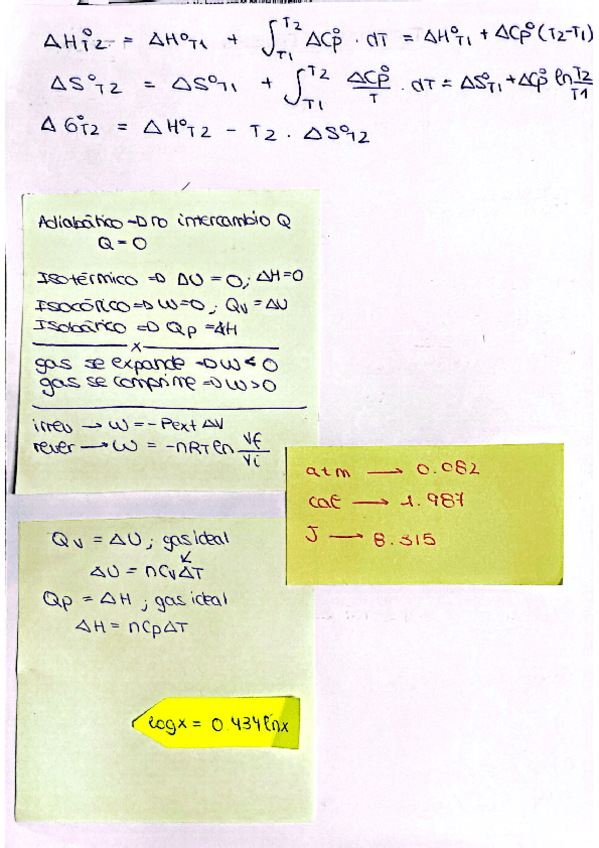 ΔH°T2 = ΔH°T1 + ∫T1T2 ΔCp° · dT = ΔH°T1 + ΔCp° (T2-T1)
ΔS°T2 = ΔS°T1 + ∫T1T2 ΔCp°/T · dT = ΔS°T1 + ΔCp° ln T2/T1
ΔG°T2 = ΔH°T2 - T2 · ΔS°T2
Adiabático ⇒ no intercambio Q
Q = 0
Isotérmico ⇒ ΔU = 0; ΔH=0
Isocórico ⇒ W=0; Qv = ΔU
Isobárico ⇒ Qp = ΔH
x
gas se expande ⇒ W < 0
gas se comprime ⇒ W > 0
irrev → W = -Pext ΔV
rever → W = -nRT ln Vf/Vi
atm → 0.082
cal → 1.987
J → 8.315
Qv = ΔU ; gas ideal
ΔU = nCvΔT
Qp = ΔH ; gas ideal
ΔH = nCpΔT
logx = 0.434 lnx